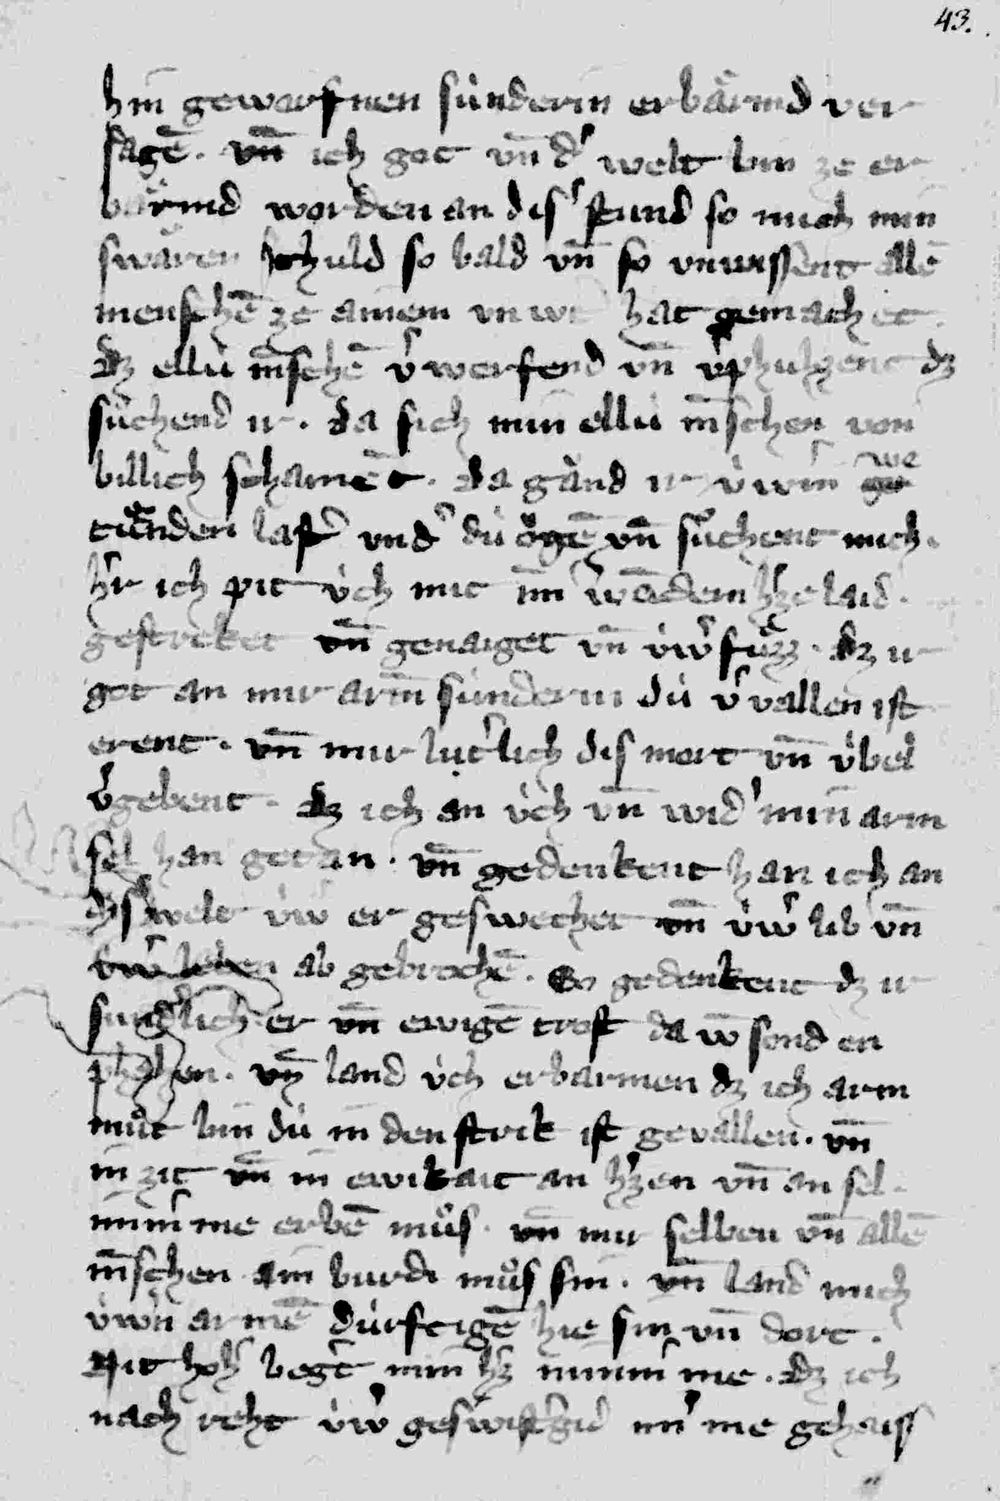 43.
hin gewarfnen sünderin erbärmd ver
sagē. vn̄ ich got vn̄ dʼ welt bin ze er
bärmd worden an disʼ stund so mich min
swären schuld so bald vn̄ so vnwissent allē
menschē ze ainem vnwt hat gemachet.
dz ellú m̄schē vʼwerfend vn̄ vʼphulgent dz
súchend ir. da sich nun ellú m̄schen von
billich schamēt. da gänd ir úwern we
tuͤnden lastʼ vnd dú ogē vn̄ suͦchent mich.
hʼr ich pit úch mit hʼzelaid.
gestreket vn̄ genaiget vn̄ úwʼ fuͤzz. dz ir
got an mir arm̄ sünderin dú vʼvallen ist
erent. vn̄ mir lutʼlich dis mort vn̄ úbel
vʼgebent. dz ich an úch vn̄ widʼ min arm
sel han getan. vn̄ gedenkent han ich an
dysʼ welt úwʼ er geswechet vn̄ úwʼ lib vn̄
úwʼ leben ab gebrochē. So gedenkent dz ir
sundʼlich er vn̄ ewigē trost da vō sond en
phahen. vn̄ land úch erbarmen dz ich arm
muͦt bin dú in den strik ist gevallen. vn̄
in zit vn̄ in ewikait an hʼzen vn̄ an sel
nimʼme erbē muͦs. vn̄ mir selben vn̄ allē
m̄schen ain burdi muͦs sin. vn̄ land mich
úwʼn armē dúrftigē hie sin vn̄ dort.
Nit hohʼ begʼt min hʼz nimmʼ me. dz ich
nach reht úwʼ geswistʼgid nimʼ me gehaiss